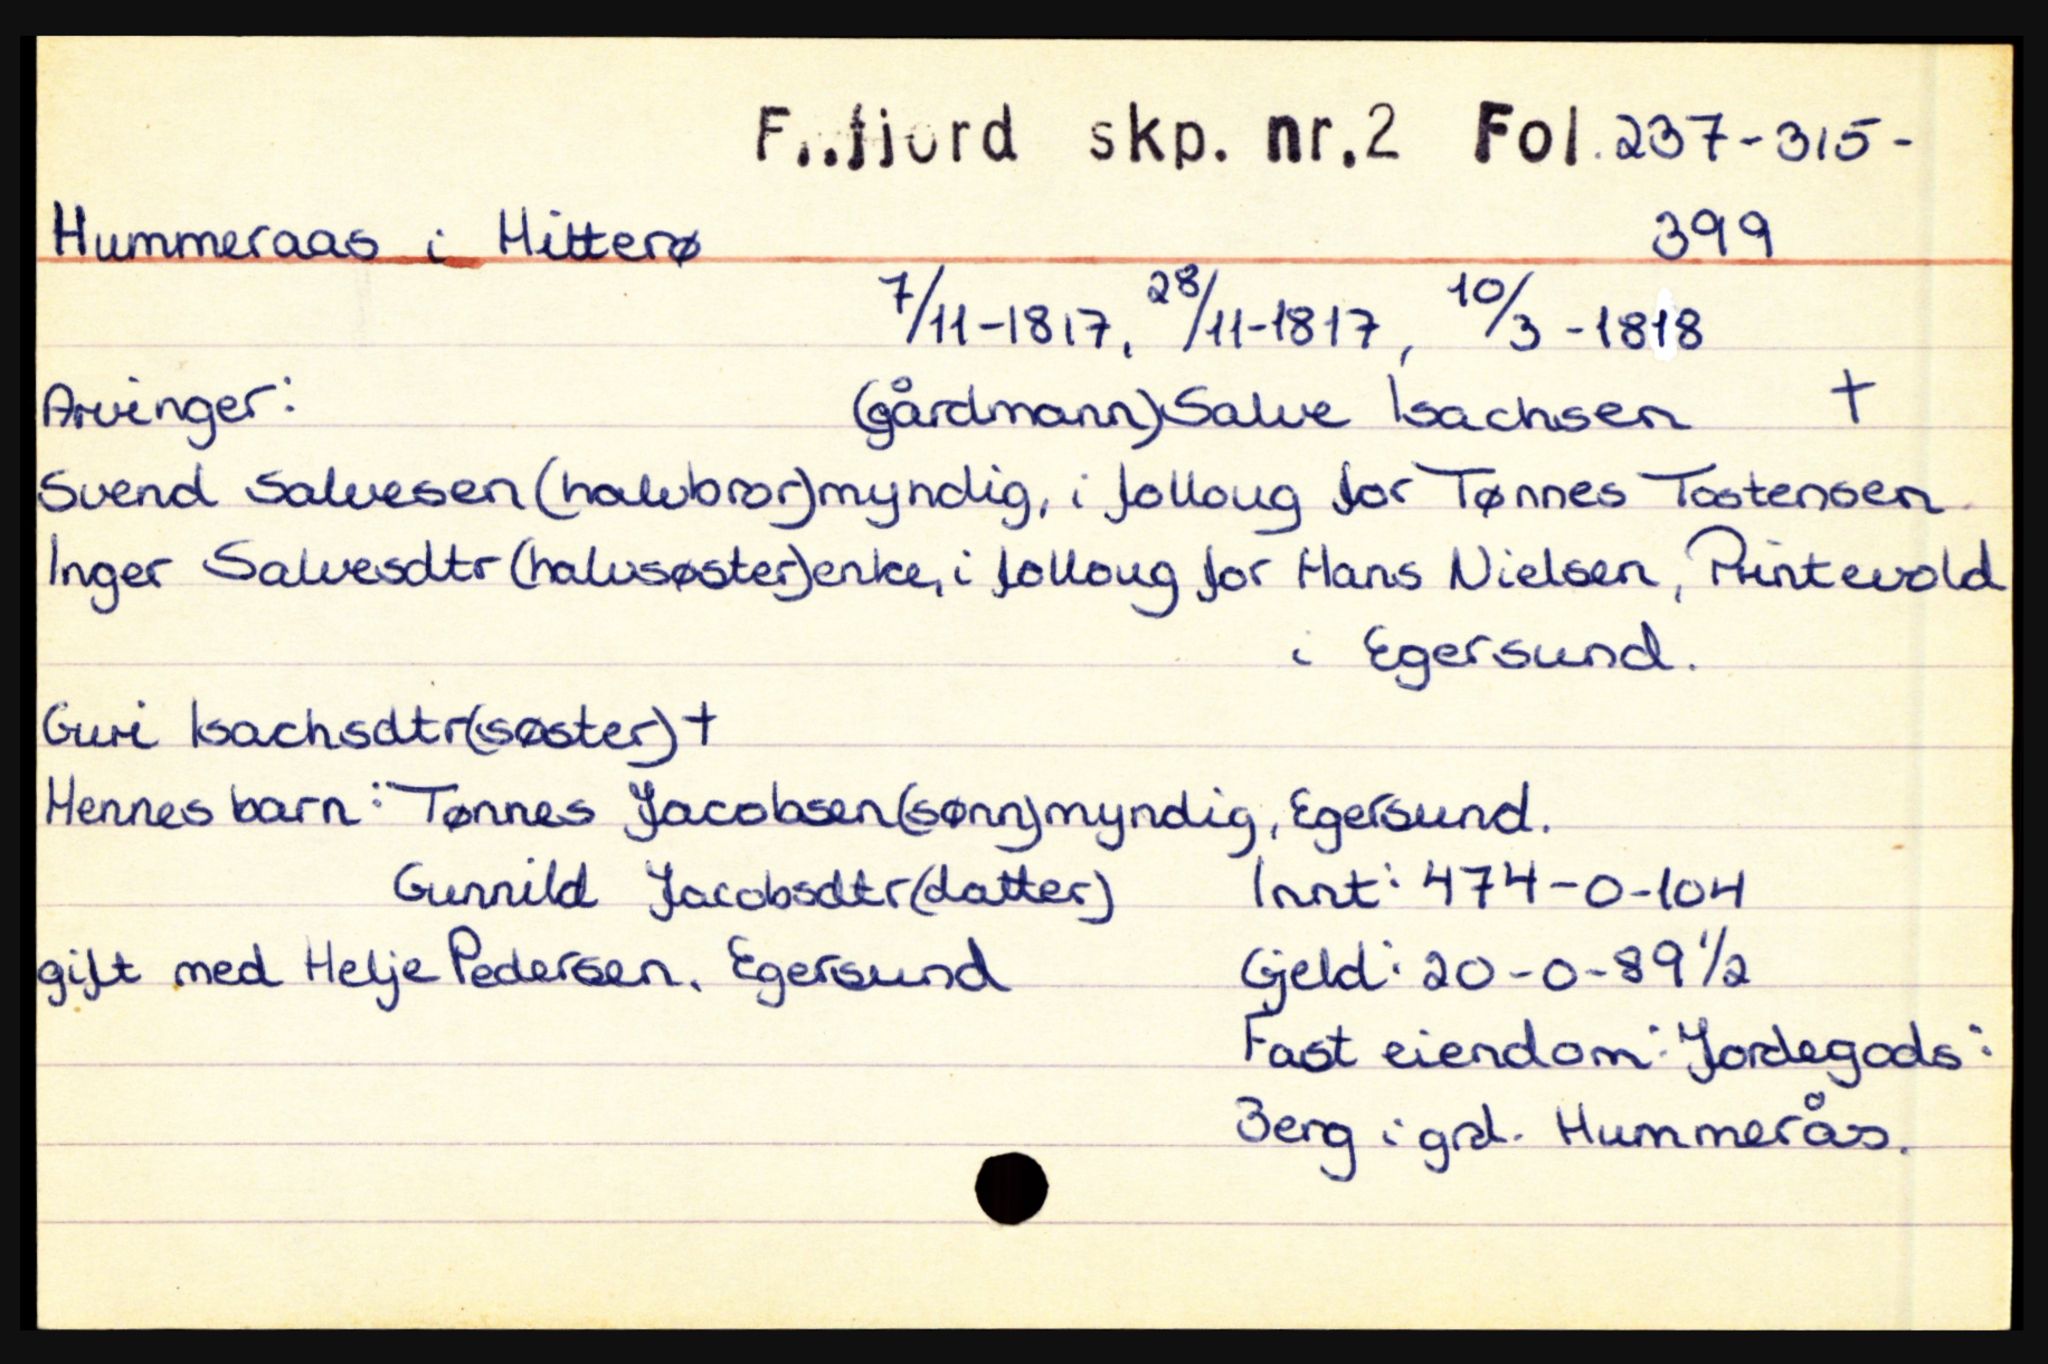 F..fjord skp. nr.2 Fol.237-315-
399
Hummeraas i Hitterø
7/11-1817, 28/11-1817, 10/3-1818
Arvinger: (gårdmann)Salve Isachsen †
Svend Salvesen(halvbror)myndig, i folloug for Tønnes Tostensen
Inger Salvesdtr(halvsøster)enke, i folloug for Hans Nielsen, Printevold
i Egersund.
Guri Isachsdtr(søster)†
Hennes barn: Tønnes Jacobsen(sønn)myndig, Egersund.
Gunnild Jacobsdtr(datter) Innt: 474-0-104
gift med Helje Pedersen. Egersund Gjeld: 20-0-89 1/2
Fast eiendom: Jordegods:
3eng i grd. Hummerås.